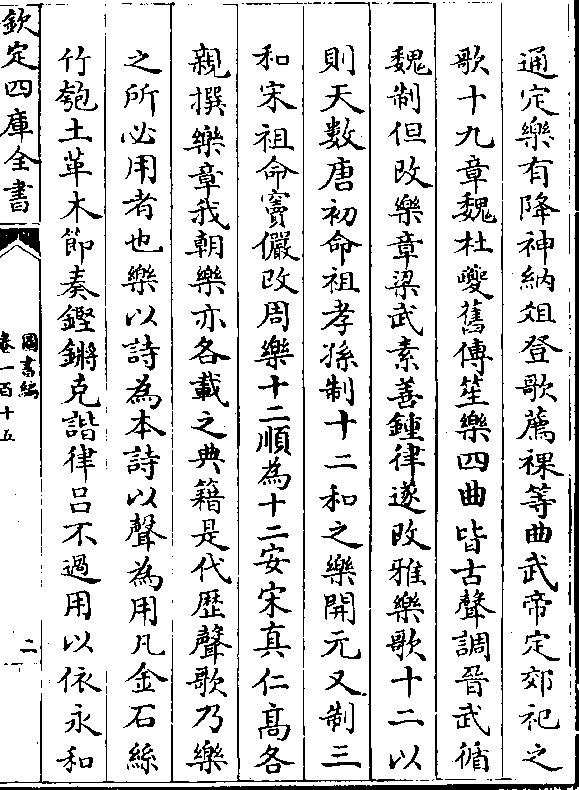 通定樂有降神納俎登歌薦祼等曲武帝定郊祀之
歌十九章魏杜夔舊傳笙樂四曲皆古聲調晉武循
魏制但改樂章梁武素善鍾律遂改雅樂歌十二以
則天數唐初命祖孝孫制十二和之樂開元又制三
和宋祖命竇儼改周樂十二順為十二安宋真仁髙各
親撰樂章我朝樂亦各載之典籍是代歴聲歌乃樂
之所必用者也樂以詩為本詩以聲為用凡金石絲
竹匏土革木節奏鏗鏘克諧律吕不過用以依永和
欽定四庫全書
圖書編
卷一百十五
二